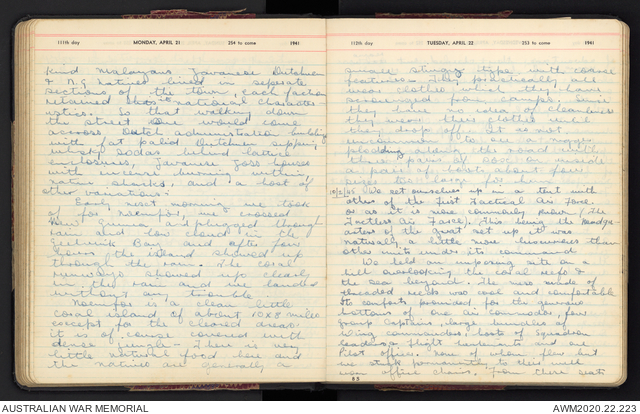 111th day MONDAY, APRIL 21 254 to come 1941
kind Malayans, Javanese, Dutchmen
& N.G. natives lived in seperate
sections of the town, each faction
retained its national character-
istics. So that walking down
the street one would come
across Dutch administration buildings
with fat palid Dutchmen sipping
whisky sodas behind lattice
enclosures, Javanese joss houses
with incense burning within,
native shacks, and a host of
other variations.
Early next morning we took
off for Noemfor, we crossed
New Guinea and plugged through
rain and low cloud in the
Geelvink Bay and after few
hours the island showed up
through the rain. The coral
runways showed up clearly
in the rain and we landed
without any trouble.
Noemfor is a clean little
coral island of about 10x8 miles
except for the cleared areas
it is of course covered with
dense jungle. There is very
little natural food here and
the natives are generally a
112th day TUESDAY, APRIL 22 253 to come 1941
smaller type with coarse
features. They practically all
wear clothes which they have
scrounged from camps. Since
they have no idea of cleanliness
they wear these clothes until
they drop off. It is not
uncommon to see a
plodding along the road with
three pairs of sox on inside
a pair of boots about four
sizes too large for him.
10/2/45 We set ourselves up in a tent with
others of the First Tactical Air Force
or as it is more commonly known (The
Tactless Air Force), this being the headqu-
arters of the great set up it was
naturally a little more luxurious than
other units under its command.
We held an imposing site on a
hill overlooking the coral reefs &
the sea beyond. The mess made of
thickened reeds was cool and comfortable
& comforts provided for the
bottoms of one air commodore, few
group captains, large bunches of
Wing commanders, lots of squadron
leaders, flight lieutenants and one
Pilot officer, none of whom flew but
we stuck permanently to their well
worn office chairs. From these seats
55
AUSTRALIAN WAR MEMORIAL
AWM2020.22.223